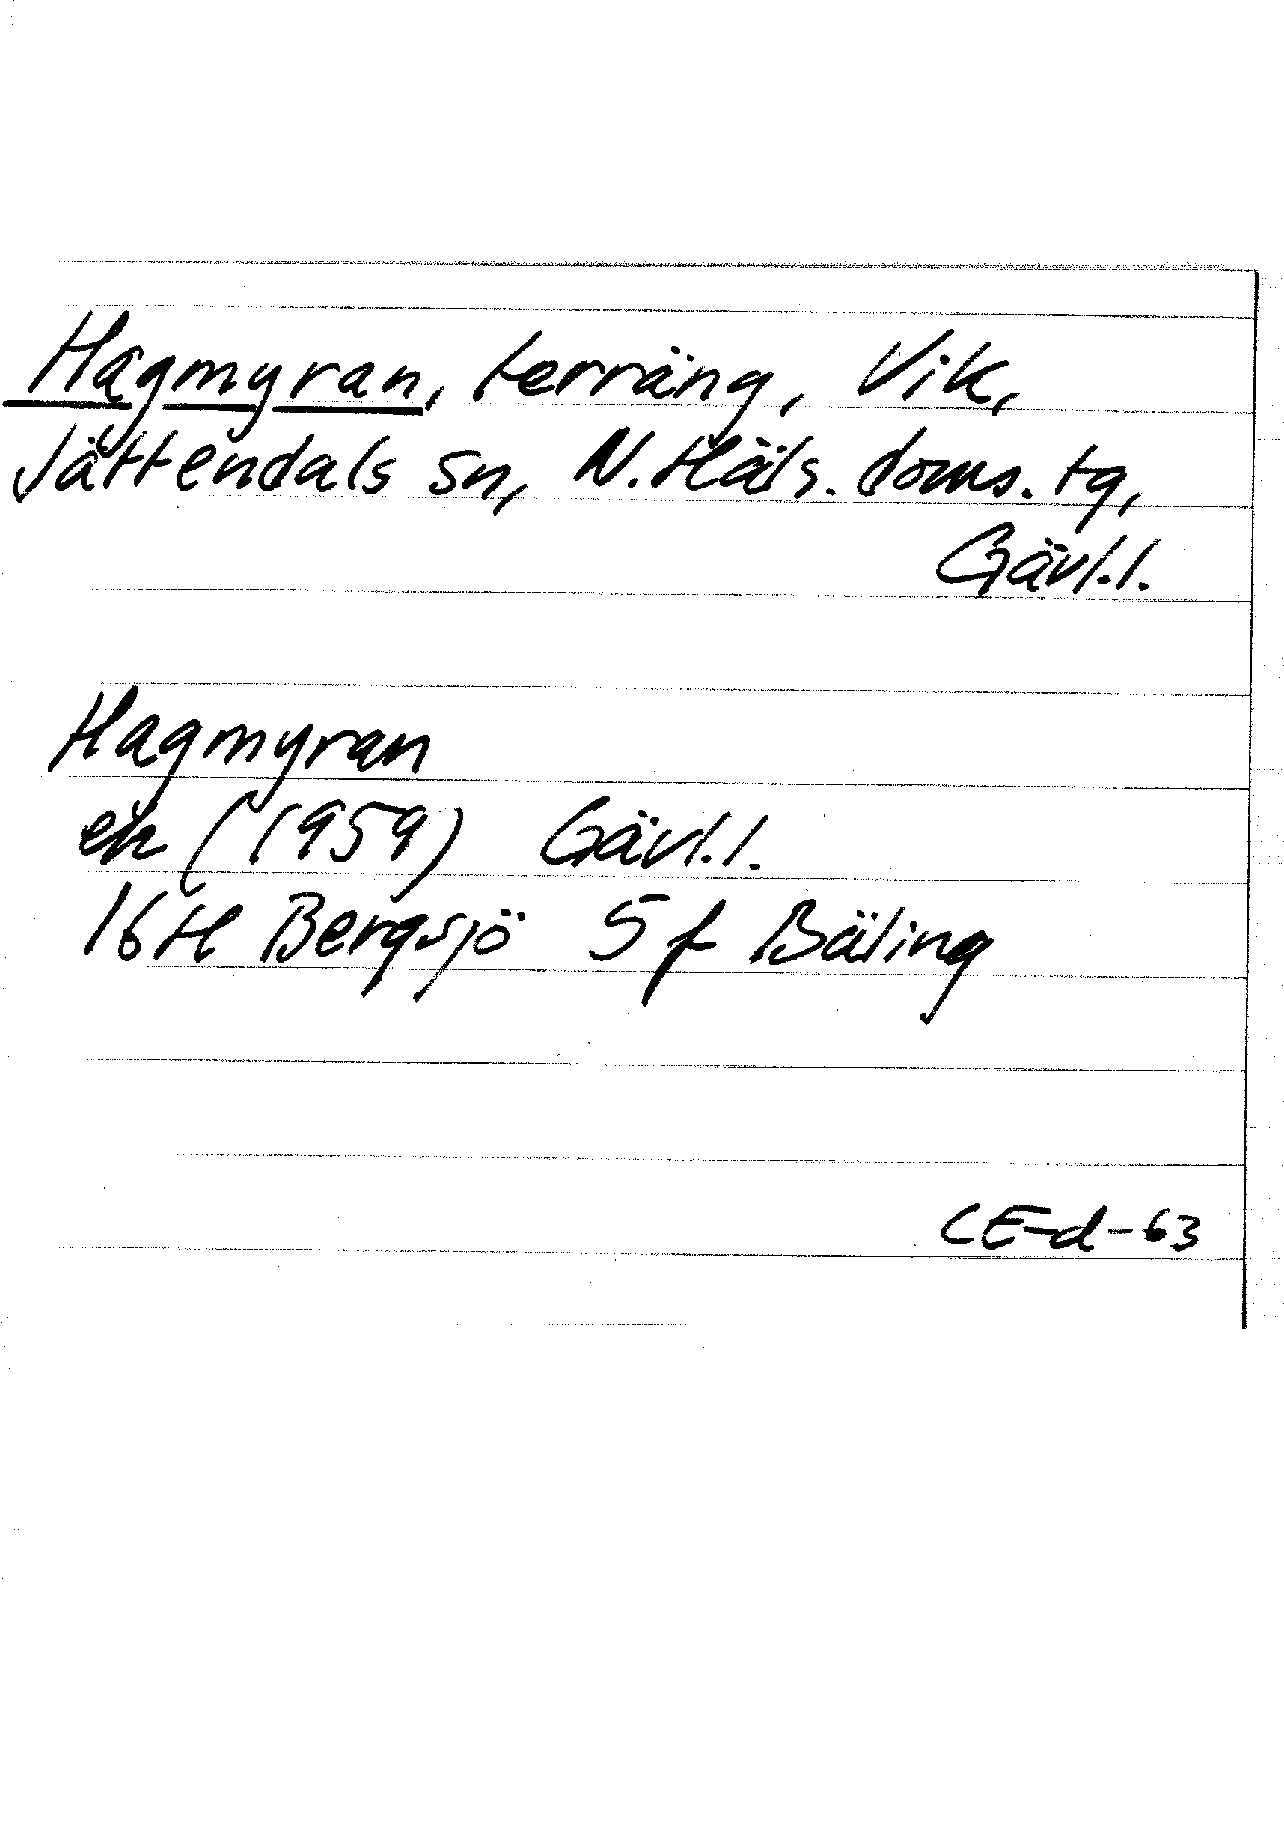 Hagmyran, terräng, Vik,
Jättendals sn, N. Häls. doms. tg,
Gävl.l.
Hagmyran
ek (1959) Gävl.l.
16H Bergsjö 5 f Bäling
CE-d-63